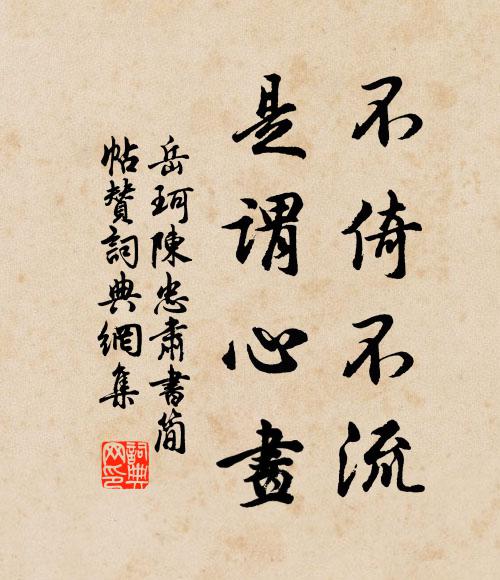 不倚不流
是謂心畫
岳珂陳忠肅書簡
帖贊詞典網集
詞典
网印